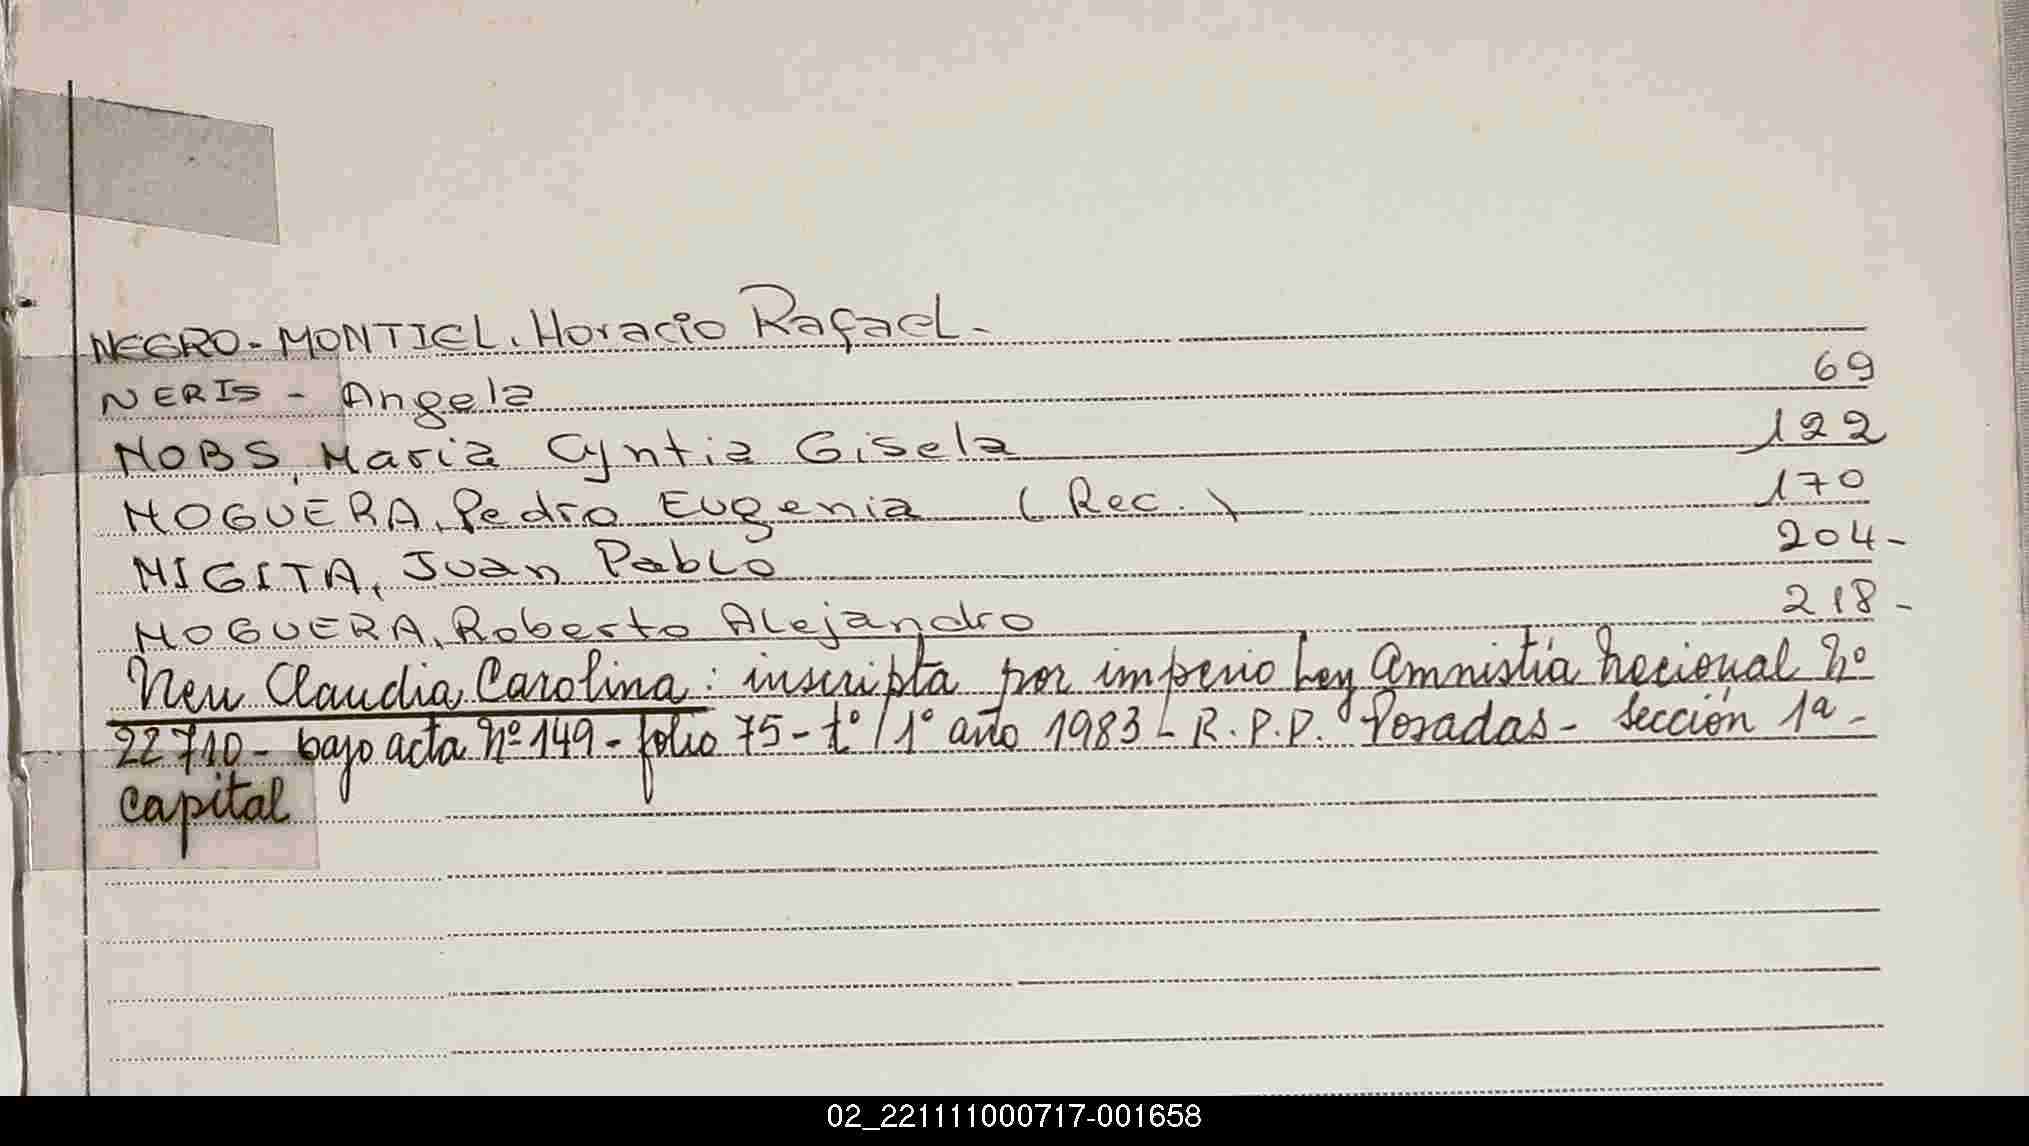 NEGRO-MONTIEL, Horacio Rafael-
NERIS - Angela 69
NOBS, Maria Cyntia Gisela 122
NOGUERA, Pedro Eugenia (Rec.) 170
NIGITA, Juan Pablo 204-
NOGUERA, Roberto Alejandro 218-
Neu Claudia Carolina: inscripta por imperio Ley Amnistía Nacional Nº
22710- bajo acta Nº 149- folio 75- tº/1º año 1983- R.P.P. Posadas- Sección 1a-
Capital
02_221111000717-001658